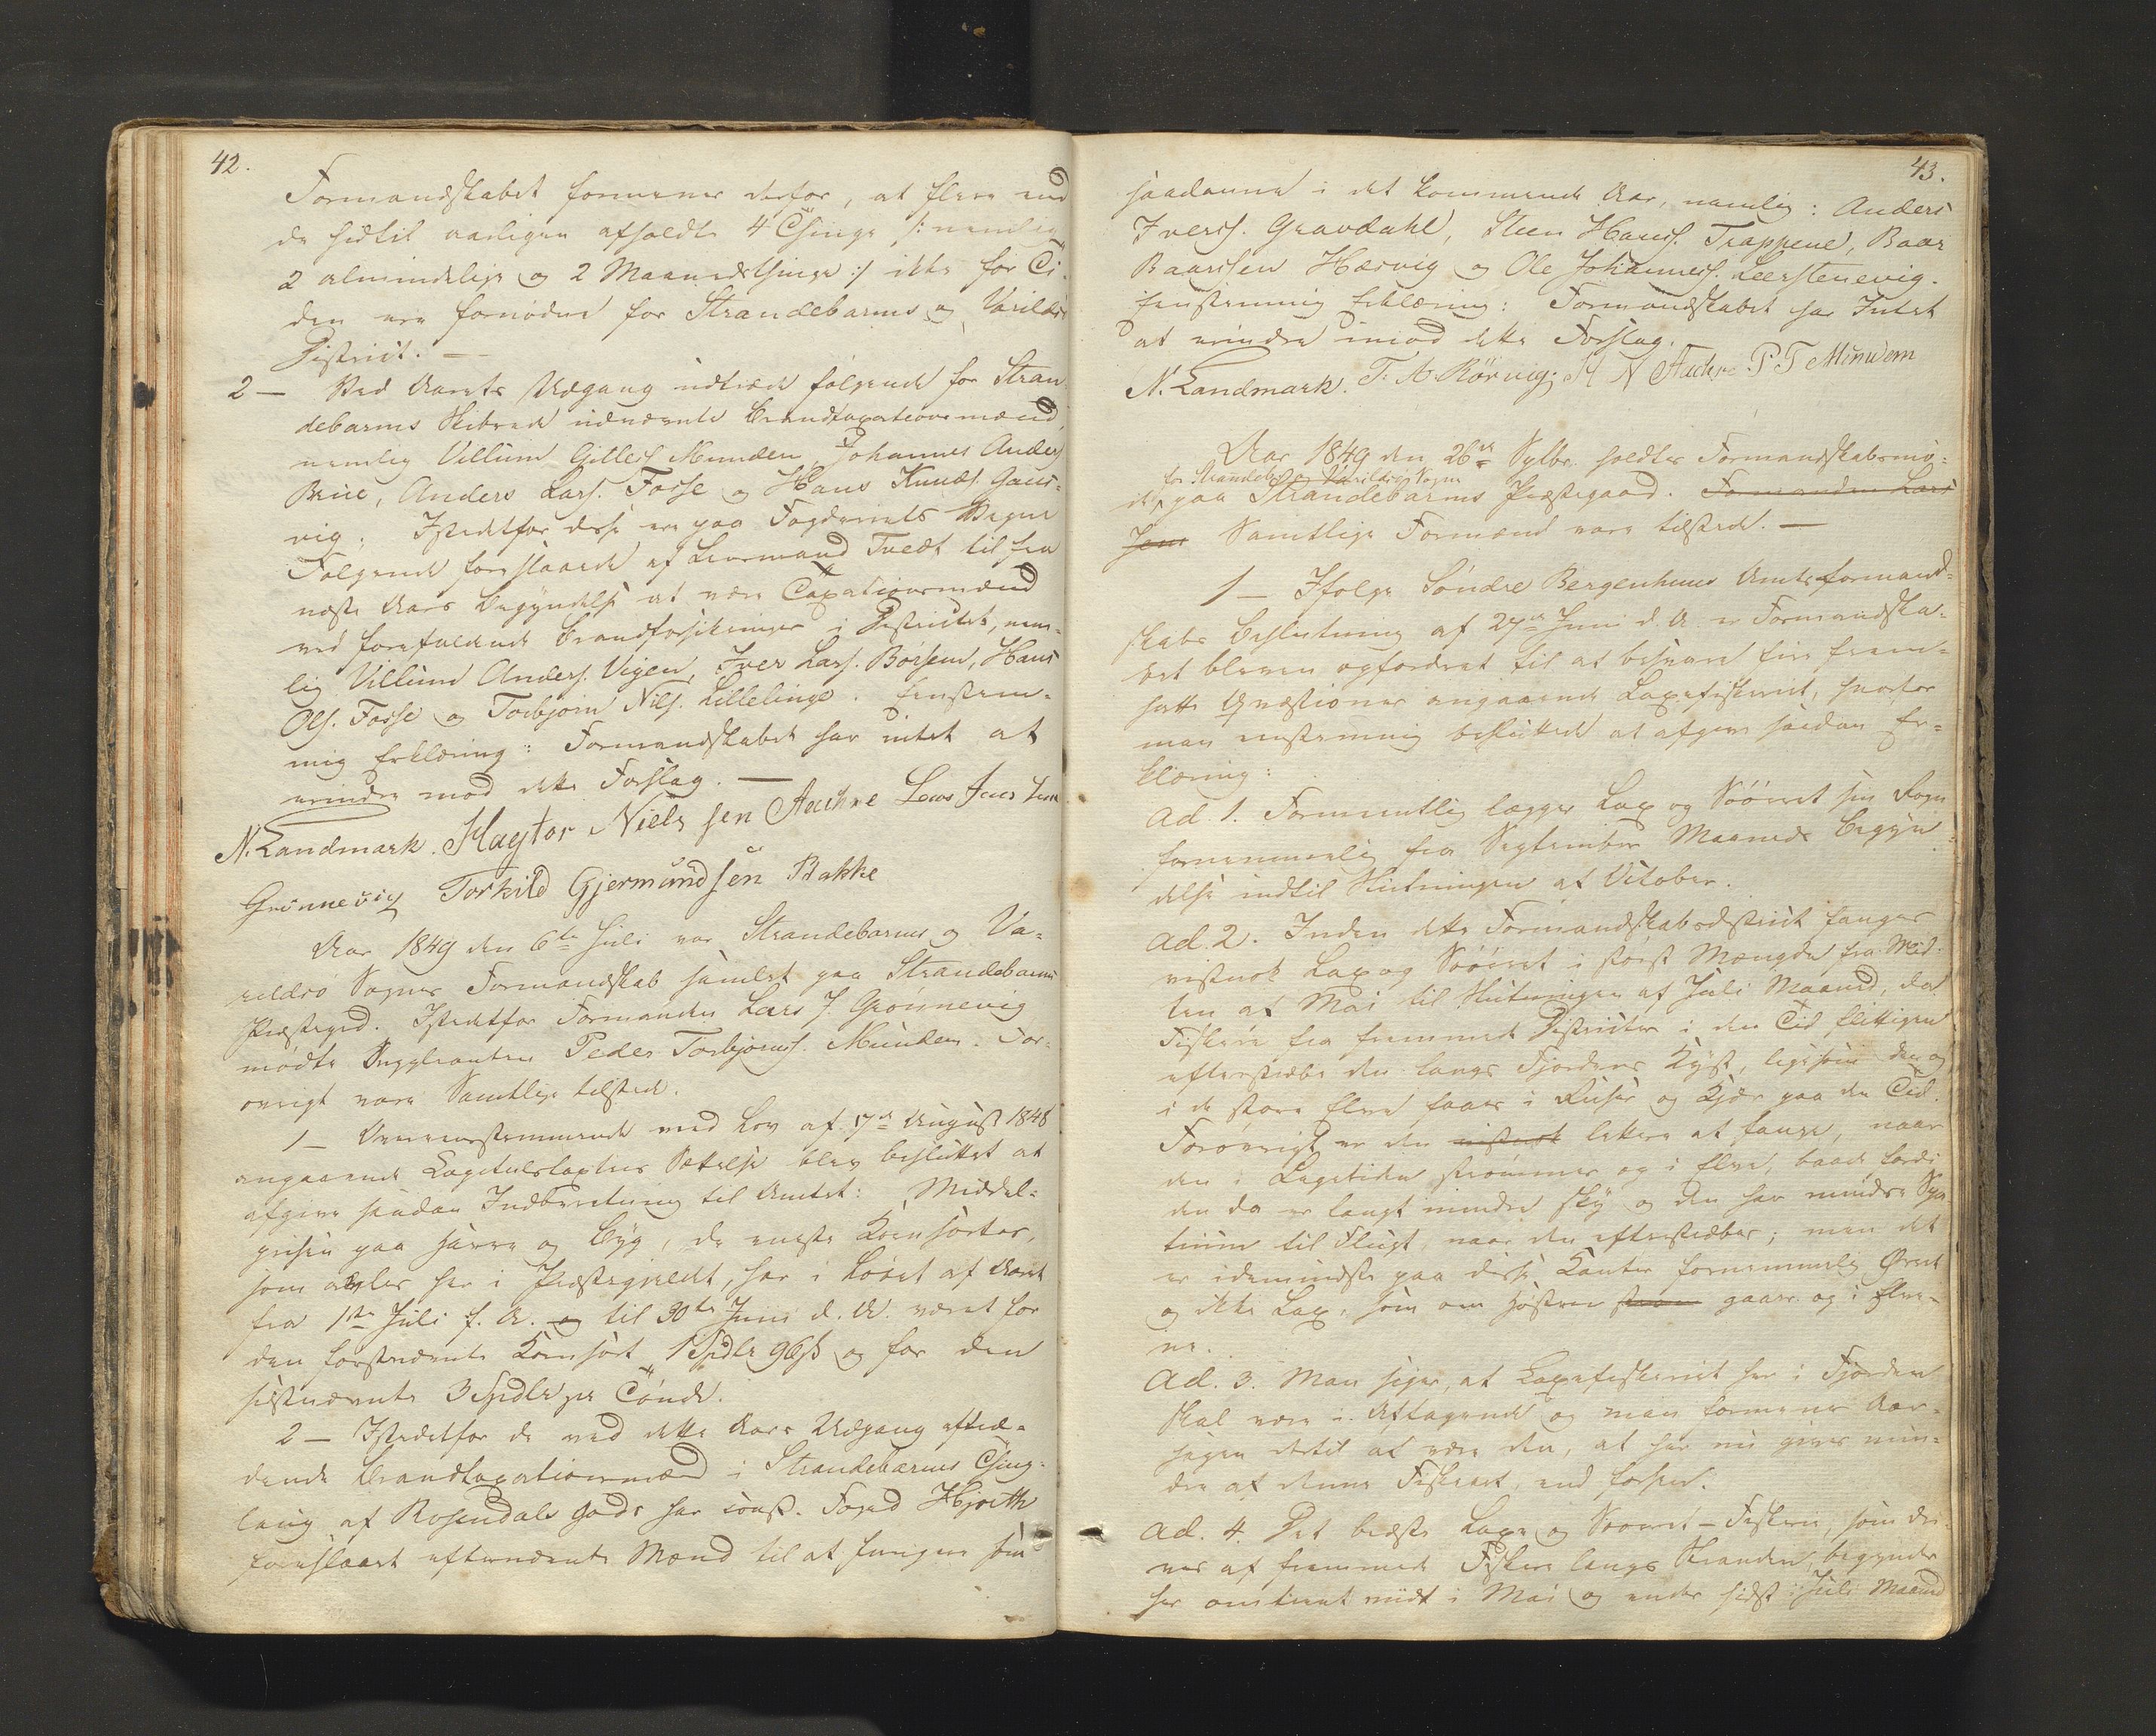 42.
Formandskabet formener derfor, at flere end
de hidtil aarligen afholdte 4 Thinge /: nemlig
2 almindelige og 2 Maanedsthinge :/ ikke for Ti-
den ere fornødne for Strandebarms og Varildsø
District. —
2 — Ved Aarets Udgang udtræde følgende for Stran-
debarms Skibrede udnævnte Brandtaxationsmænd,
nemlig Villum Gilles. Munden, Johannes Anders.
Brue, Anders Lars. Fosse og Hans Knuds. Gaus-
vig. Istedetfor disse ere paa Fogderiets Vegne
Følgende foreslaaede af Lensmand Tvedt til fra
næste Aars Begyndelse at være Taxationsmænd
ved forefaldende Brandforsikringer i Districtet, nem-
lig Villum Anders. Vigen, Iver Lars. Børsem, Hans
Ols. Fosse og Torbjørn Nils. Lillelinge. Eenstem-
mig Erklæring: Formandskabet har intet at
erindre mod dette Forslag. —
N. Landmark. Hagtor Nielssen Aachre Lars Jenssen
Grønnevig Torkild Gjermundsen Bakke
Aar 1849 den 6te Juli var Strandebarms og Va-
rildsø Sognes Formandskab samlet paa Strandebarms
Præstegrd. Istedetfor Formanden Lars J. Grønnevig
mødte Suppleanten Peder Torbjørns. Munden. For-
øvrigt vare Samtlige tilstede.
1 — Overensstemmende med Lov af 17de August 1848
angaaende Capitelstaxters Sættelse blev besluttet at
afgive saadan Indberetning til Amtet: Middel-
prisen paa Havre og Byg, de eneste Kornsorter,
som avles her i Præstegjeldet, har i Løbet af Aaret
fra 1ste Juli f. A. og til 30te Juni d. A. været for
den førstnævnte Kornsort 1 Spdlr 96 ß og for den
sidstnævnte 3 Spdlr pr Tønde.
2 — Istedetfor de ved dette Aars Udgang aftræ-
dende Brandtaxationsmænd i Strandebarms Thing-
laug af Rosendals Gods har const. Foged Hjorth
foreslaaet efternævnte Mænd til at fungere som
43.
saadanne i det kommende Aar, nemlig: Anders
Ivers. Gravdahl, Steen Hans. Trappene, Baar
Baarsen Hærvig og Ole Johannes. Leerstenevig.
Eenstemmig Erklæring: Formandskabet har Intet
at erindre imod dette Forslag.
N. Landmark. T. A. Rörvig. H N Aachre P T Munden
Aar 1849 den 26de Sptbr. holdtes Formandskabsmø-
for Strandeb. og Varildsø Sogne
de paa Strandebarms Præstegaard. Formanden Lars
Jens Samtlige Formænd vare tilstede. —
1 — Ifølge Søndre Bergenhuus Amtsformand-
skabs Beslutning af 27de Juni d. A. er Formandska-
bet bleven opfordret til at besvare fire frem-
satte Qvæstioner angaaende Laxefiskeriet, hvorfor
man eenstemmig besluttede at afgive saadan Er-
klæring:
Ad. 1. Formeentlig lægger Lax og Søørret sin Rogn
fornemmelig fra September Maaneds Begyn-
delse indtil Slutningen af October.
Ad. 2. Inden dette Formandskabsdistrict fanges
vistnok Lax og Søørret i størst Mængde fra Mid-
ten af Mai til Slutningen af Juli Maaned, da
Fiskere fra fremmede Districter i den Tid flittigen
efterstræbe den langs Fjordens Kyst, ligesom den og
i de store Elve faaes i Ruser og Kjær paa den Tid.
Forøvrigt er den vistnok lettere at fange, naar
den i Legetiden strømmer op i Elve, baade fordi
den da er langt mindre sky og den har mindre Spa-
tium til Flugt, naar den efterstræbes; men det
er idetmindste paa disse Kanter fornemmelig Ørret
og ikke Lax, som om Høsten strøm gaaer op i Elve-
ne.
Ad. 3. Man siger, at Laxefiskeriet her i Fjorden
skal være i Aftagende og man formener Aar-
sagen dertil at være den, at her nu gives min-
dre af denne Fiskeart, end forhen.
Ad. 4. Det bedste Laxe og Søørret-Fiskerie, som dri-
ves af fremmede Fiskere langs Stranden, begynder
her omtrent midt i Mai og ender sidst i Juli Maaned